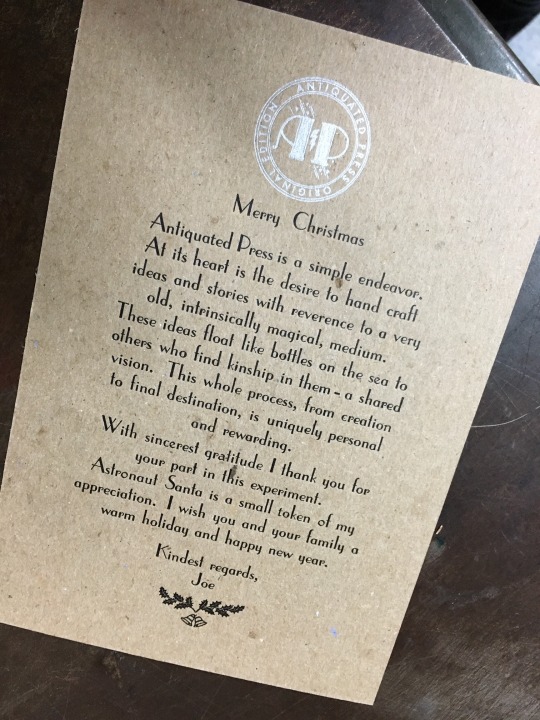 ANTIQUATED PRESS
ORIGINAL EDITION
AP
Merry Christmas
Antiquated Press is a simple endeavor.
At its heart is the desire to hand craft
ideas and stories with reverence to a very
old, intrinsically magical, medium.
These ideas float like bottles on the sea to
others who find kinship in them - a shared
vision. This whole process, from creation
to final destination, is uniquely personal
and rewarding.
With sincerest gratitude I thank you for
your part in this experiment.
Astronaut Santa is a small token of my
appreciation. I wish you and your family a
warm holiday and happy new year.
Kindest regards,
Joe